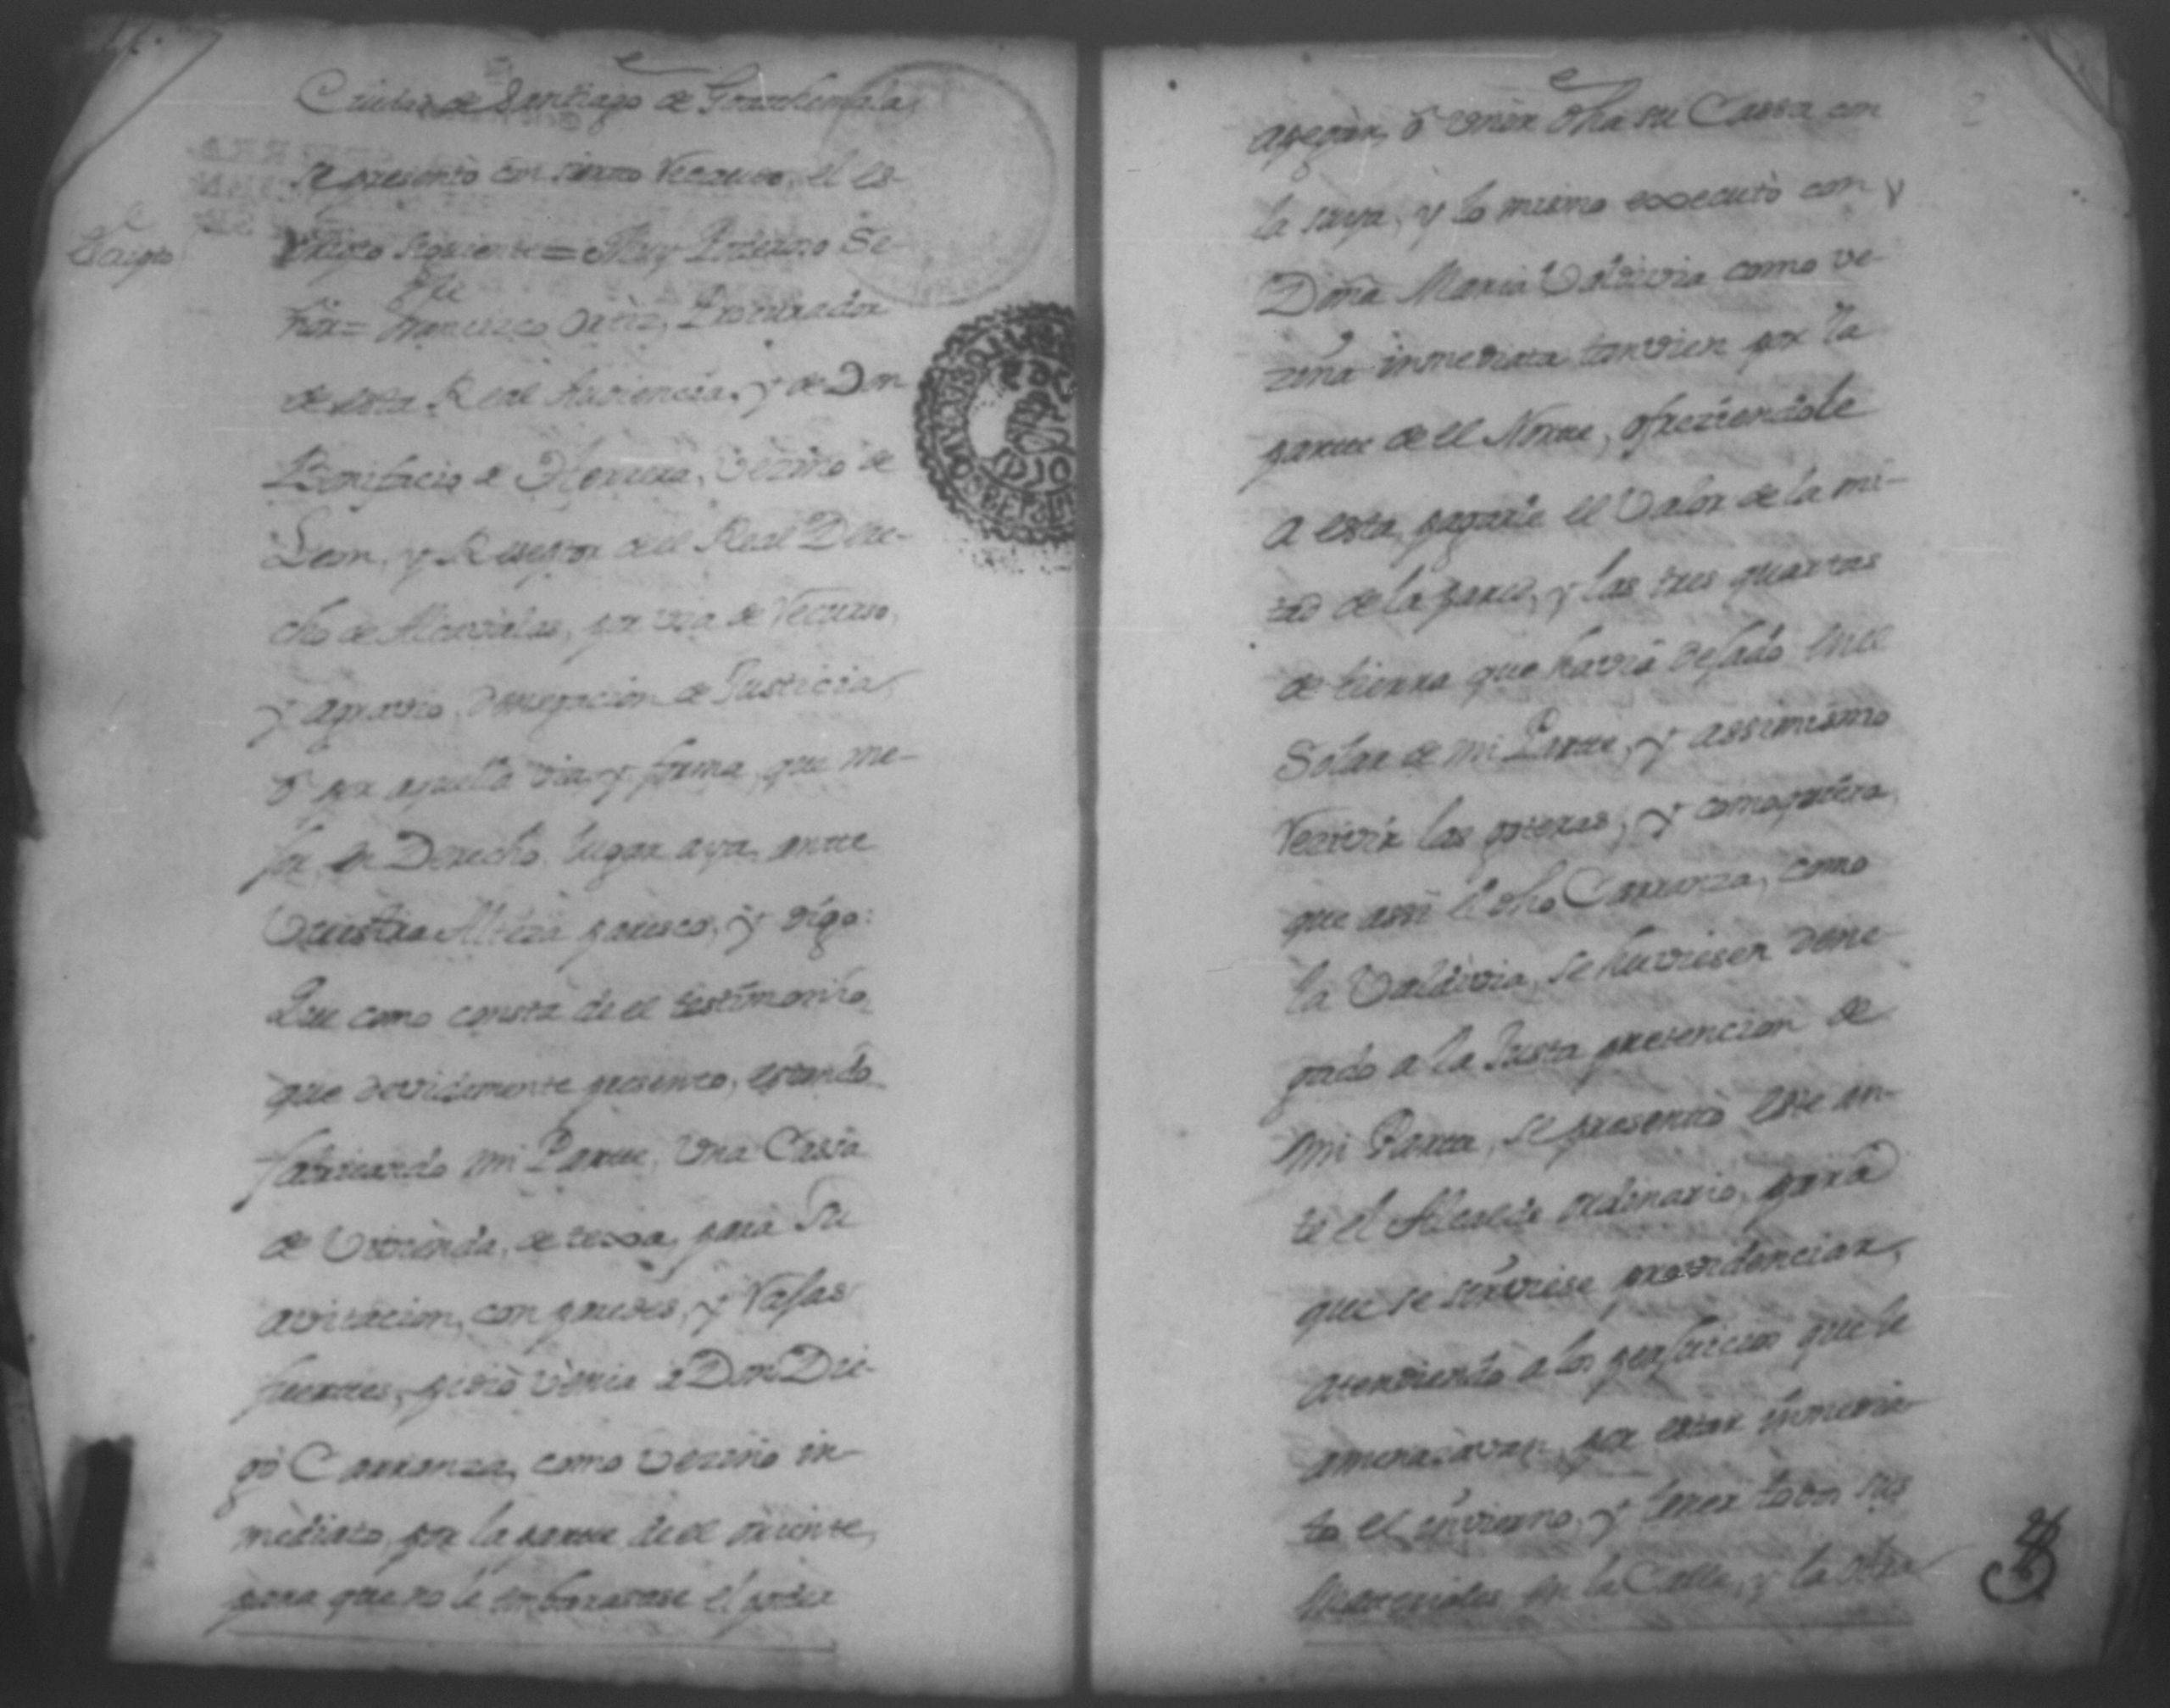 Ciudad de Santiago de Goatthemala,
se presentò con sierto Recurso, el es-
cripto siguiente = Muy Poderoso Se-
ñor = Phe Francisco Ortiz, Procurador
de esta Real Audiencia, y de Don
Bonifacio de Herrera, Vezino de
Leon, y Reseptor del Real Dere-
cho de Alcavalas, por via de Recurso,
y agravio, denegacion de Justicia,
ò por aquella via, y forma, que me-
jor en Derecho lugar aya, ante
Vuestra Alteza paresco, y digo:
Que como consta de el testimonio,
que devidamente presento, estando
fabricando mi Parte, Una Cassa
de Vivienda, de texa, para su
avitacion, con paredes, y Rafas
fuertes, pidiò venia à Don Die-
go Carranza, como vezino in-
mediato, por la parte de el oriente,
para que no le embarasase el poder
Escripto
apegar, ò Unir dha su Cassa con
la suya, y lo mismo executò con
Doña Maria Valdivia como ve-
zina inmediata tanvien por la
parte de el Norte, ofreziendole
a esta pagarle el Valor de la mi-
tad de la pared, y las tres quartas
de tierra que havia dejado en el
Solar de mi Parte, y assimismo
Recivir las goteras, y como quiera
que assi el dho Carranza, como
la Valdivia, se huviesen dene-
gado a la Justa pretencion de
mi Parte, se presentò este an-
te el Alcalde ordinario, para
que se sirviese providenciar,
atendiendo a los perjuicios que le
amenazavan, por estar inmedia-
to el invierno, y tener todos sus
Materiales en la Calle, y la otra